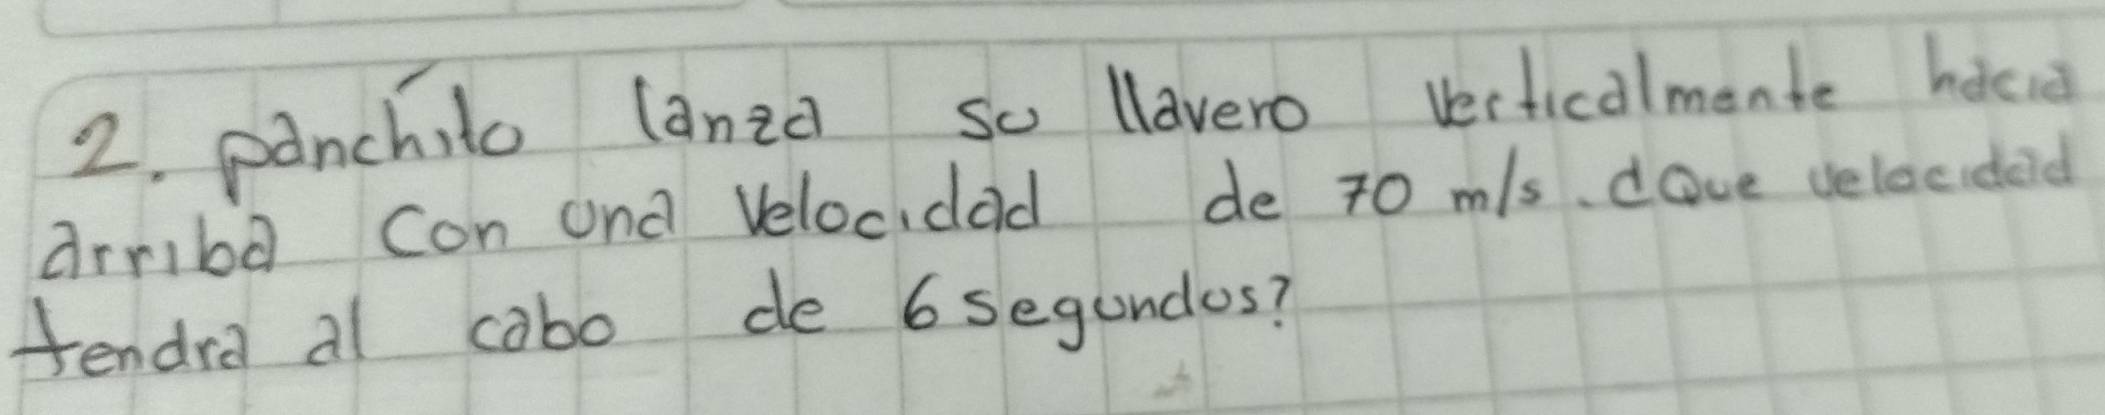 2. panchito lanza su llavero verticalmente hacia
arriba con una velocidad de 70 m/s. ¿Que velocidad
tendra al cabo de 6 segundos?